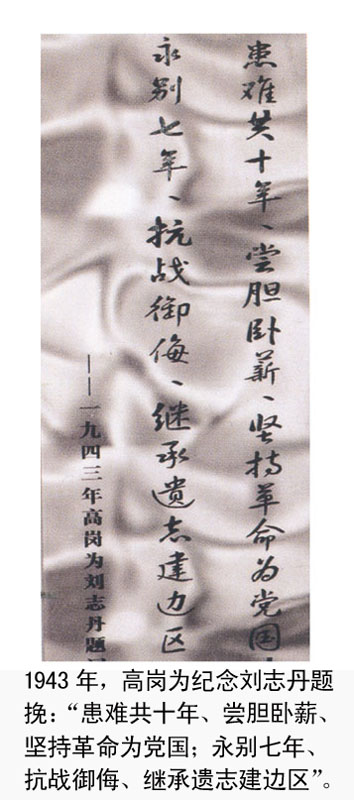 患难共十年、尝胆卧薪、坚持革命为党国，
永别七年、抗战御侮、继承遗志建边区
——一九四三年高岗为刘志丹题
1943 年，高岗为纪念刘志丹题
挽：“患难共十年、尝胆卧薪、
坚持革命为党国；永别七年、
抗战御侮、继承遗志建边区”。